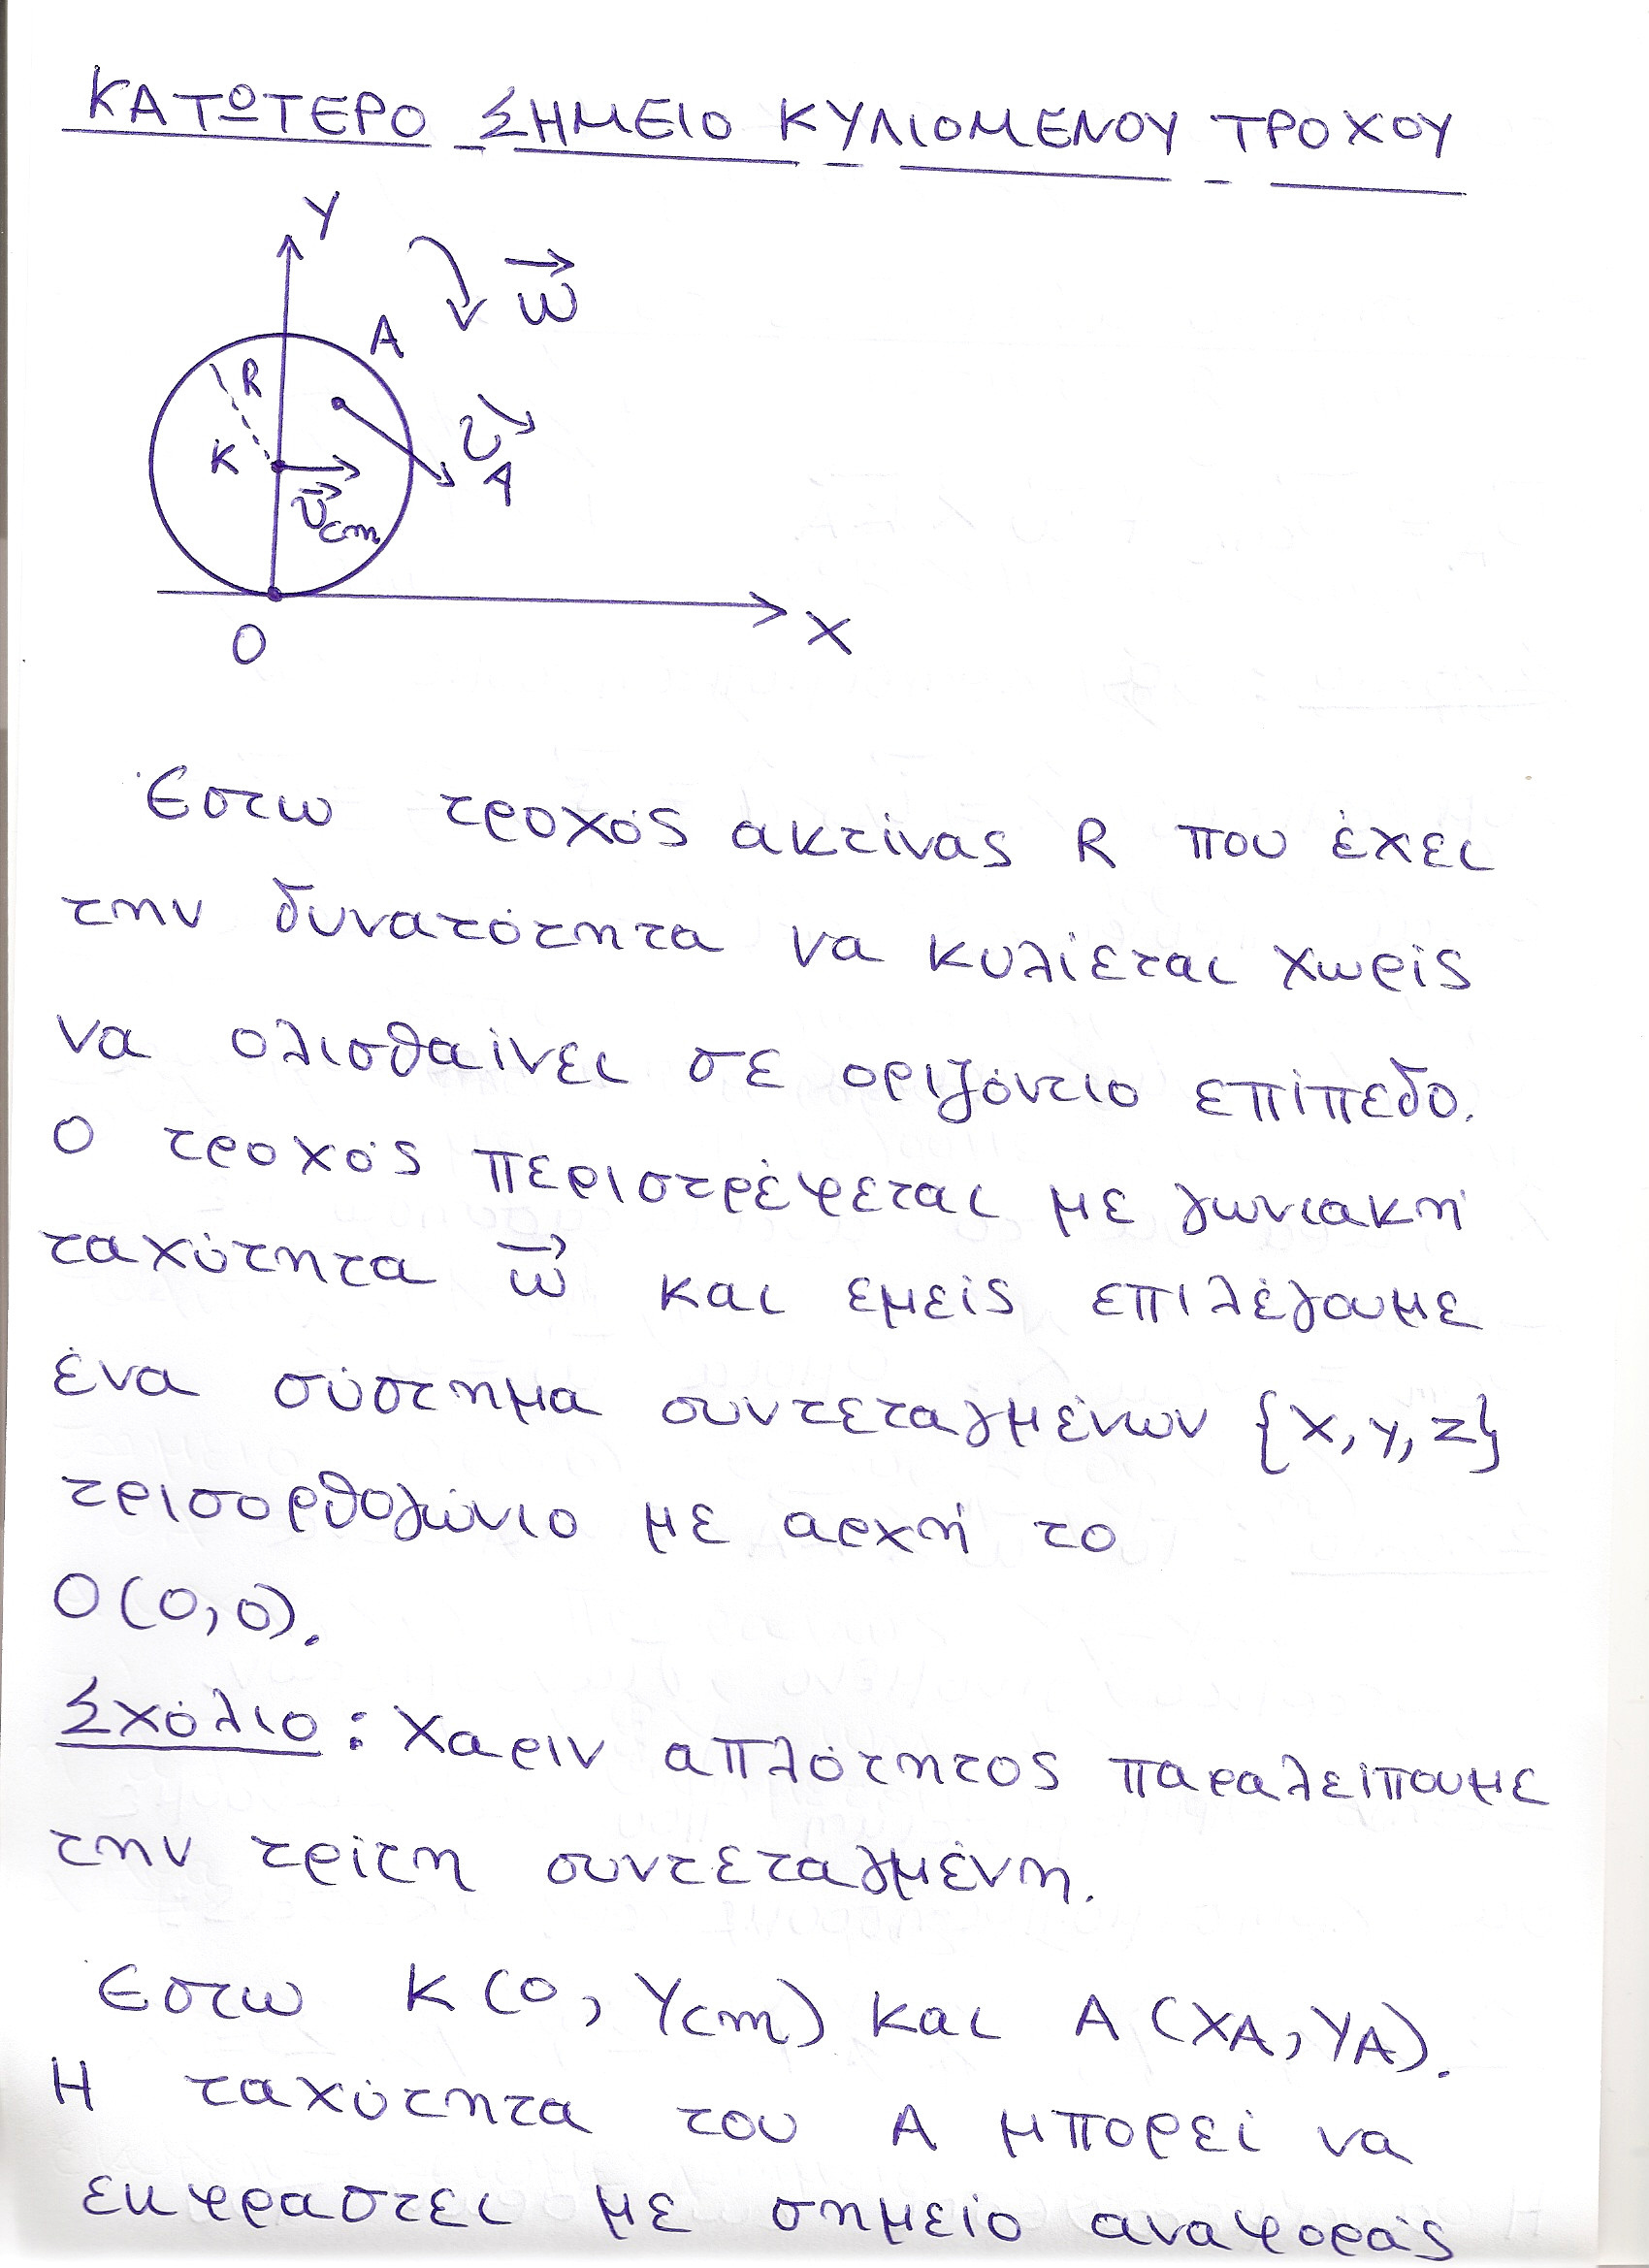 ΚΑΤΩΤΕΡΟ ΣΗΜΕΙΟ ΚΥΛΙΟΜΕΝΟΥ ΤΡΟΧΟΥ
Y
ω
A
R
υA
K
υcm
O
X
Έστω τροχός ακτίνας R που έχει
την δυνατότητα να κυλίεται χωρίς
να ολισθαίνει σε οριζόντιο επίπεδο.
Ο τροχός περιστρέφεται με γωνιακή
ταχύτητα ω και εμείς επιλέγουμε
ένα σύστημα συντεταγμένων {x, y, z}
τρισορθογώνιο με αρχή το
O(0,0).
Σχόλιο: Χαριν απλότητος παραλείπουμε
την τρίτη συντεταγμένη.
Έστω K(0, Ycm) και A(XA, YA).
Η ταχύτητα του A μπορεί να
εκφραστεί με σημείο αναφοράς